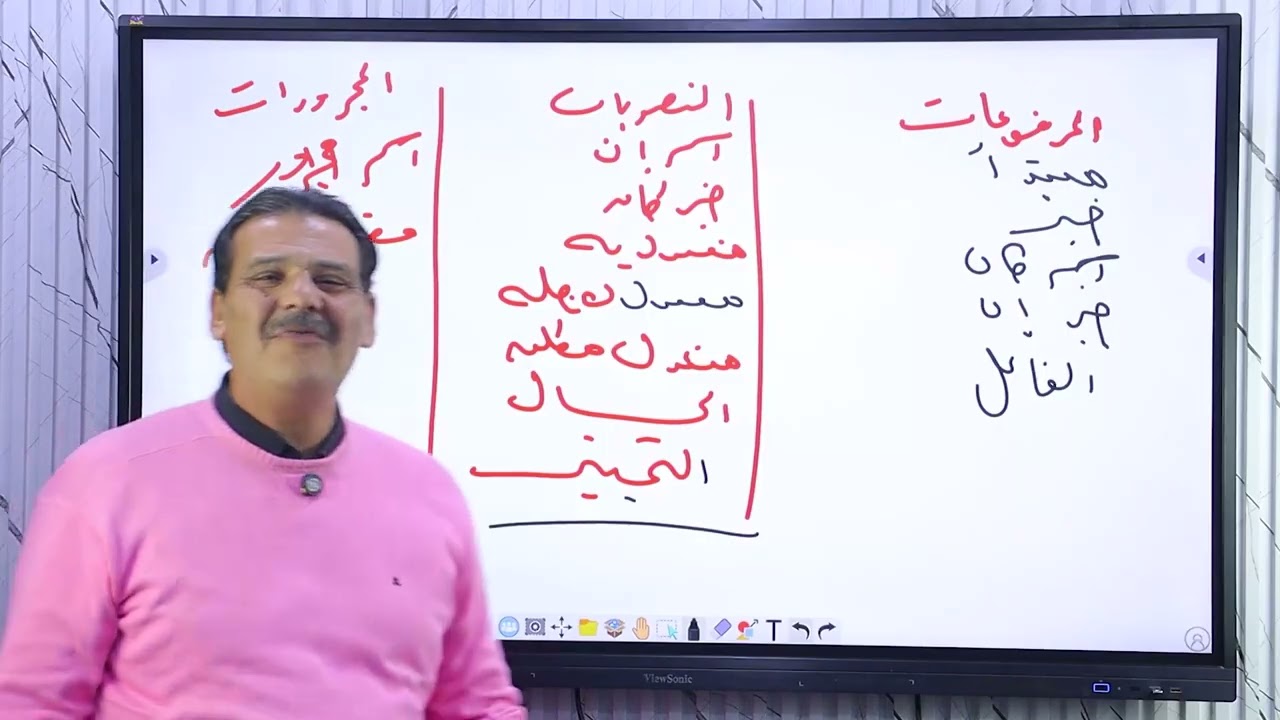 المرفوعات
مبتدأ
خبر
اسم كان
خبر إن
الفاعل
المنصوبات
اسم إن
خبر كان
مفعول به
مفعول لأجله
مفعول مطلق
الحال
التمييز
المجرورات
اسم مجرور
ViewSonic